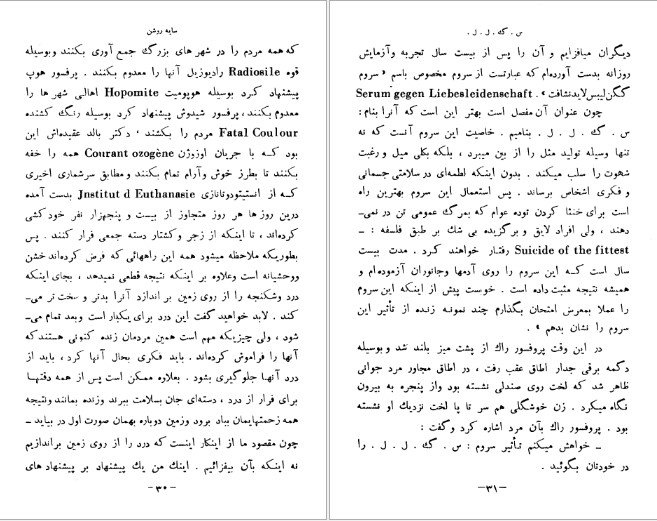 سایه روشن
که همه مردم را در شهر های بزرگ جمع آوری بکنند وبوسیله
قوه Radiosile رادیوزیل آنها را معدوم بکنند . پرفسور هوپ
پیشنهاد کرد بوسیله هوپومیت Hopomite اهالی شهر ها را
معدوم بکنند ، پرفسور شیدوش پیشنهاد کرد بوسیله رنگ کشنده
Fatal Coulour مردم را بکشند ، دکتر بالد عقیده‌اش این
بود که با جریان اوزوژن Courant ozogène همه را خفه
بکنند تا بطرز خوش وآرام تمام بکنند و مطابق سرشماری اخیری
که از انستیتودوتانازی Jnstitut d Euthanasie بدست آمده
درین روز ها هر روز متجاوز از بیست و پنجهزار نفر خودکشی
کرده‌اند ، تا اینکه از زجر وکشتار دسته جمعی فرار کنند . پس
بطوریکه ملاحظه میشود همه این راههائی که فرض کرده‌اند خشن
ووحشیانه است وعلاوه بر اینکه نتیجه قطعی نمیدهد ، بجای اینکه
درد وشکنجه را از روی زمین بر اندازد آنرا بدتر و سخت تر می‌-
کند . لابد خواهید گفت این درد برای یکبار است وبعد تمام می‌-
شود ، ولی چیزیکه مهم است همین مردمان زنده کنونی هستند که
آنها را فراموش کرده‌اند . باید فکری بحال آنها کرد ، باید از
درد آنها جلوگیری بشود . بعلاوه ممکن است پس از همه دقتها
برای فرار از درد ، دسته‌ای جان بسلامت ببرند وزنده بمانند ونتیجه
همه زحمتهایمان بباد برود وزمین دوباره بهمان صورت اول در بیاید ــ
چون مقصود ما از اینکار اینست که درد را از روی زمین براندازیم
نه اینکه بآن بیفزائیم . اینك من یك پیشنهاد بر پیشنهاد های
ــ ۳۰ ــ
س . گ . ل . ل .
دیگران میافزایم و آن را پس از بیست سال تجربه وآزمایش
روزانه بدست آورده‌ام که عبارتست از سروم مخصوص باسم « سروم
گگن لیبس لایدنشافت » . Serum gegen Liebesleidenschaft
چون عنوان آن مفصل است بهتر این است که آنرا بنام :
س . گ . ل . ل . بنامیم . خاصیت این سروم آنست که نه
تنها وسیله تولید مثل را از بین میبرد ، بلکه بکلی میل و رغبت
شهوت را سلب میکند . بدون اینکه لطمه‌ای در سلامتی جسمانی
و فکری اشخاص برساند . پس استعمال این سروم بهترین راه
است برای خنثا کردن توده عوام که بمرگ عمومی تن در نمی‌-
دهند ، ولی افراد لایق و برگزیده بی شك بر طبق فلسفه : ــ
Suicide of the fittest رفتار خواهند کرد . مدت بیست
سال است که این سروم را روی آدمها وجانوران آزموده‌ام و
همیشه نتیجه مثبت داده است . خوست پیش از اینکه این سروم
را عملا بمعرض امتحان بگذارم چند نمونه زنده از تأثیر این
سروم را نشان بدهم » .
در این وقت پروفسور راك از پشت میز بلند شد وبوسیله
دگمه برقی جدار اطاق عقب رفت ، در اطاق مجاور مرد جوانی
ظاهر شد که لخت روی صندلی نشسته بود واز پنجره به بیرون
نگاه میکرد . زن خوشگلی هم سر تا پا لخت نزدیك او نشسته
بود . پروفسور راك بآن مرد اشاره کرد وگفت :
ــ خواهش میکنم تأثیر سروم : س . گ . ل . ل . را
در خودتان بگوئید .
ــ ۳۱ ــ